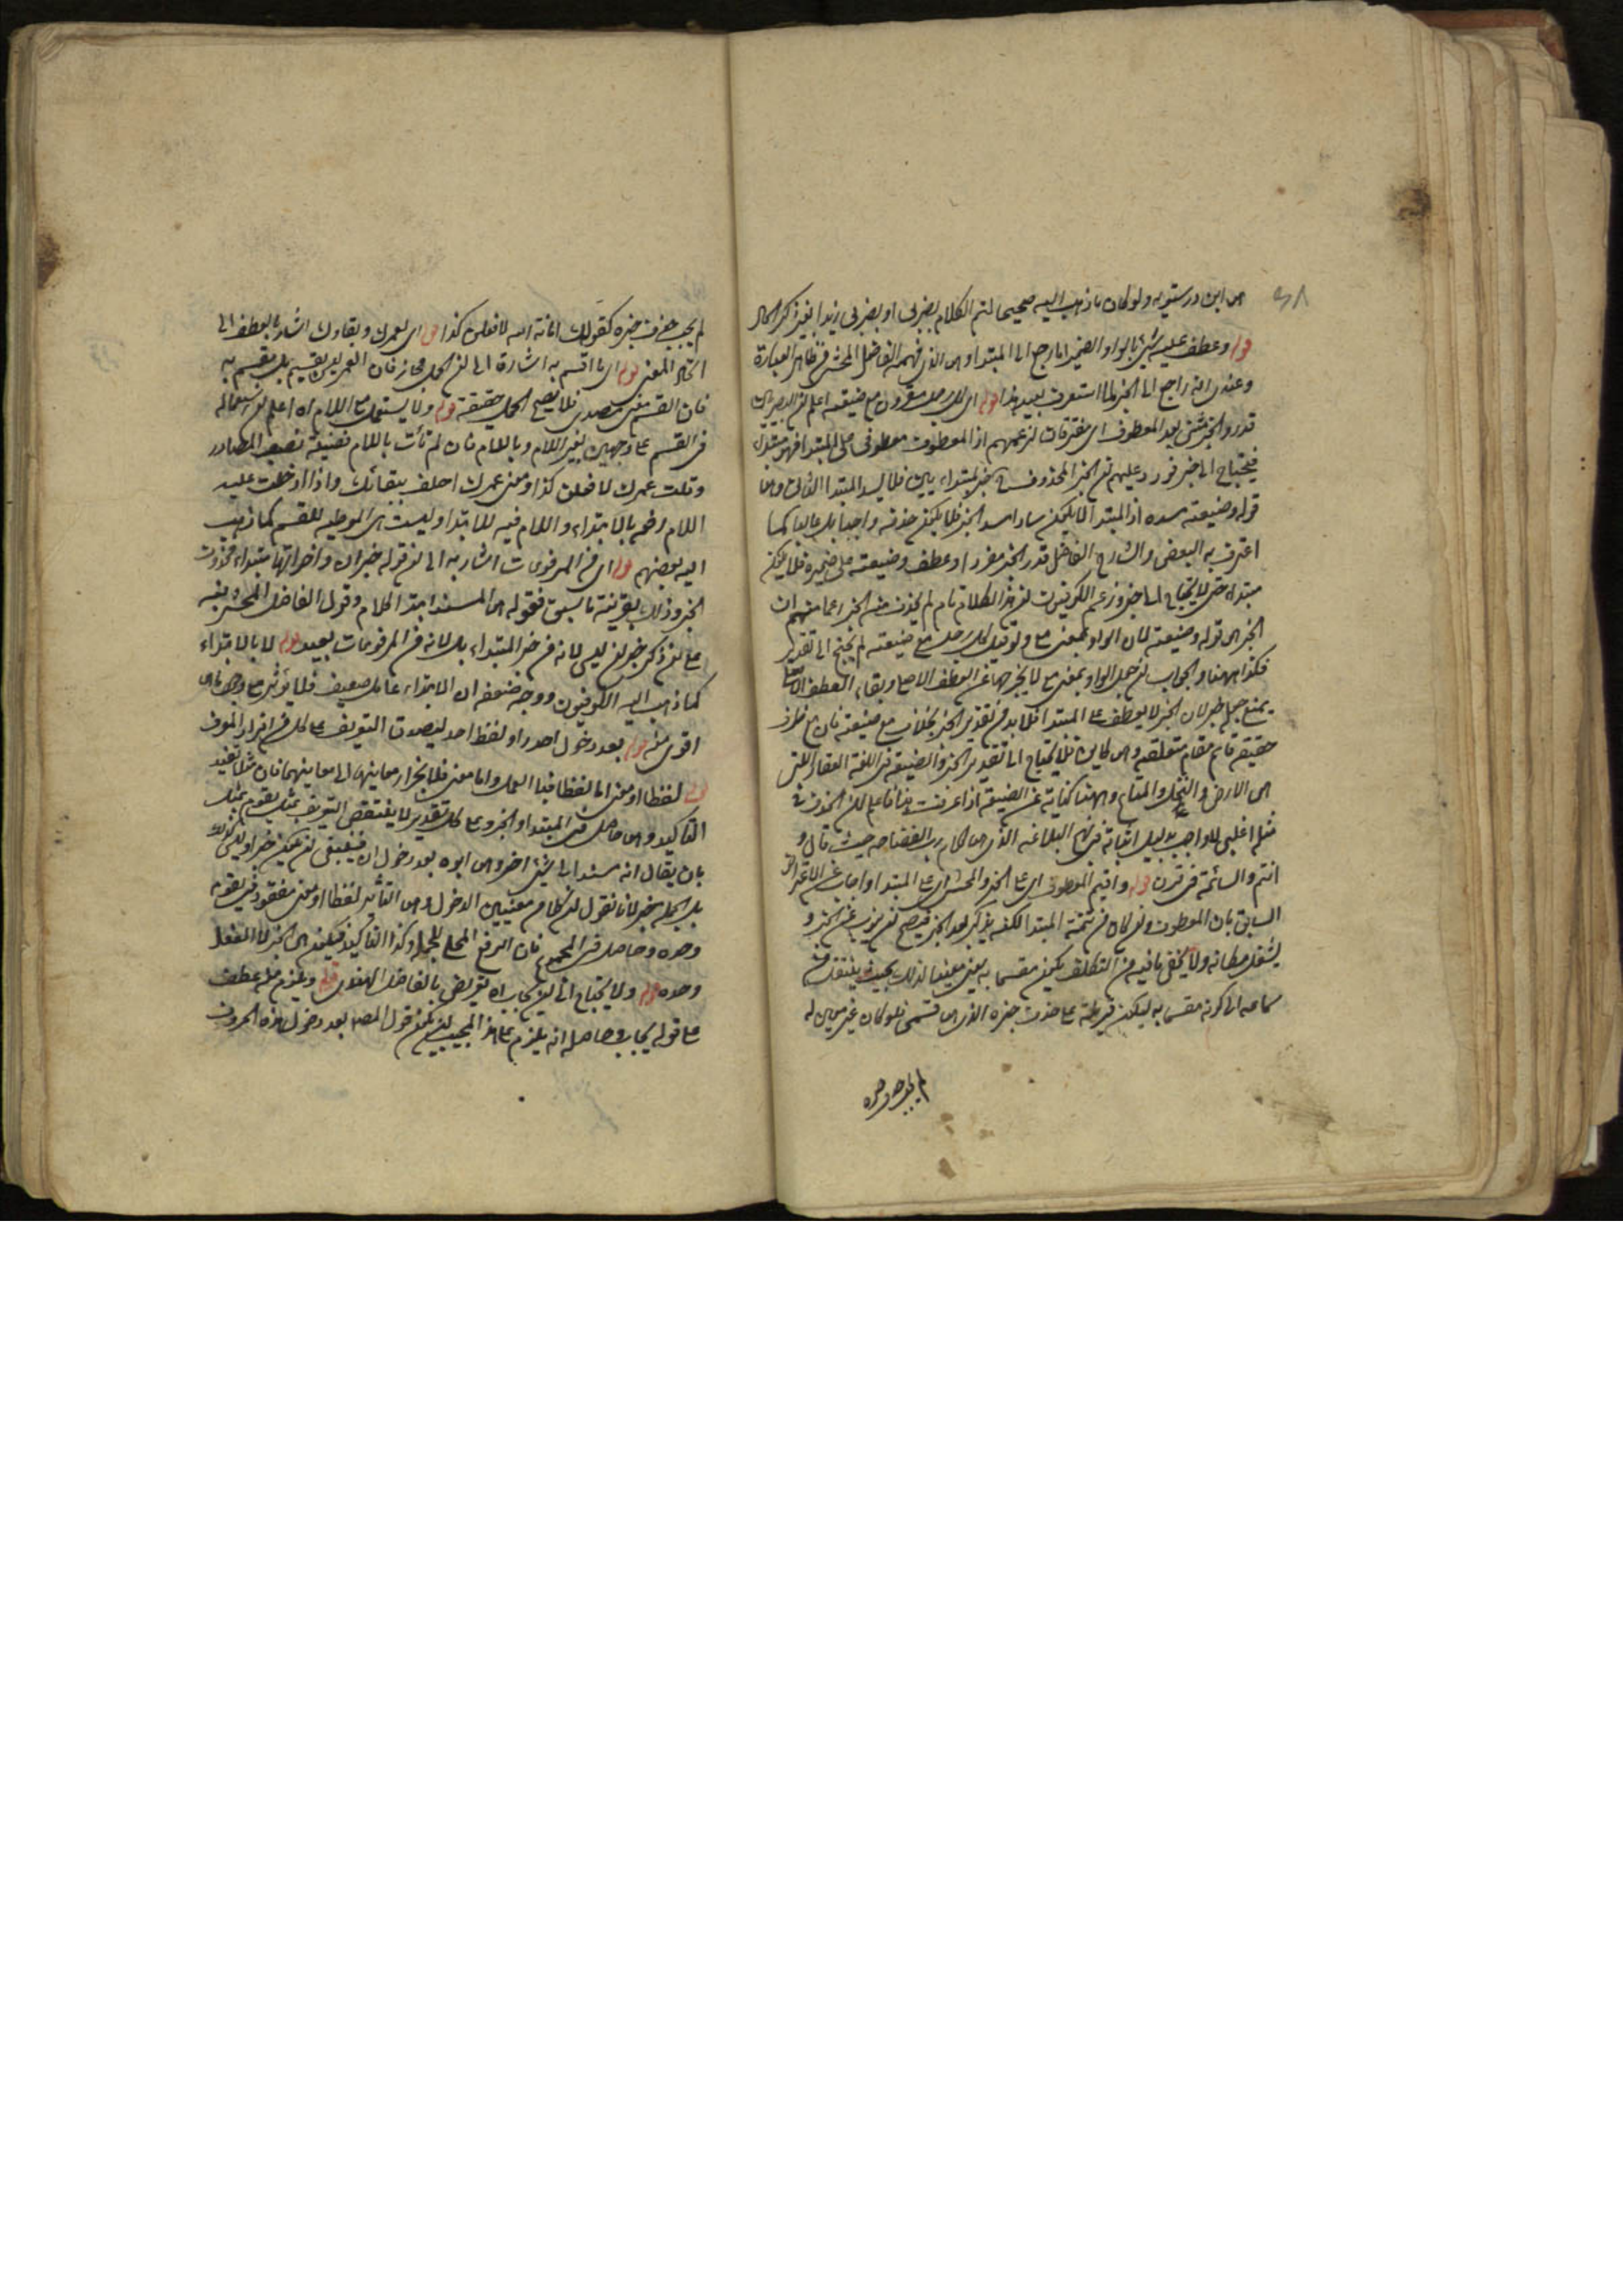 هو ابن درستويه ولو كان ما ذهب اليه صحيحا لتم الكلام بضربى او بضربى زيدا بغير ذكر الحال
قوله وعطف عليه شئ بالواو الضمير اما راجع الى المبتدا وهو الذى فهمه الفاضل المحشى فظاهر العبارة
وعندى انه راجع الى الخبر لما استعرف بعيد هذا قوله اى كل رجل مقرون مع ضيعته اعلم ان البصريين
قدروا الخبر مثنى بعد المعطوف اى مقترنان لزعمهم اذ المعطوف معطوف على المبتدا فهو مبتداء
فيحتاج الى خبر فورد عليهم ان الخبر المحذوف خبر لمبتداء فلا يسد المبتدا الثانى وهو
قوله وضيعته مسده اذ المبتدا لا يكون سادا مسد الخبر فلا يكون حذفه واجبا بل غالبا كما
اعترف به البعض والشارح الفاضل قدر الخبر مفردا وعطف وضيعته على ضميره فلا يكون
مبتداء حتى لا يحتاج الى خبر وزعم الكوفيون ان هذا الكلام تام لم يحذف منه الخبر زعما منهم ان
الخبر هو قوله وضيعته لان الواو بمعنى مع ولو قيل كل رجل مع ضيعته لم يحتج الى تقدير
فكذا ههنا والجواب ان جعل الواو بمعنى مع لا يخرجها عن العطف الاصلى وبقاء العطف
يمنع جعله خبرا لان الخبر لا يعطف على المبتدا فلا بد من تقدير الخبر بخلاف مع ضيعته فان مع ظرف
حقيقة قائم مقام متعلقه وهو كاين فلا يحتاج الى تقدير الخبر والضيعة فى اللغة العقار التى
هى الارض والنخل والمتاع وههنا كناية عن الصنعة اذا عرفت هذا فاعلم ان الحذف فى
مثله اغلبى لا واجب بدليل اثباته فى نهج البلاغه الذى هو كلام رب الفصاحه حيث قال و
انتم والساعة فى قرن قوله واقيم المعطوف اى على الخبر والمحشى اى على المبتدا واجاب عن الاعتراض
السابق بان المعطوف وان كان من تتمة المبتدا لكنه يذكر بعد الخبر فيصح ان ينوب عن الخبر و
يشغل مكانه ولا يخفى ما فيه من التكلف يكون مقسما به يعنى متعينا لذلك بحيث ينتقل
سامعه الى كونه مقسما به ليكون قرينة على حذف خبره الذى هو قسمى فلو كان غير متعين له
لم يجب حذف خبره
لم يجب حذف خبره كقولك امانة الله لافعلن كذا قوله اى لعمرك وبقاؤك اشار بالعطف الى
اتحاد المعنى قوله اى ما اقسم به اشارة الى ان الحمل مجاز فان العمر ليس بقسم بل مقسم به
فان القسم معنى مصدرى فلا يصح الحمل حقيقة قوله ولا يستعمل مع اللام اه اعلم ان استعماله
فى القسم على وجهين بغير اللام وباللام فان لم تات باللام نصبته نصب المصادر
وقلت عمرك لافعلن كذا ومعنى عمرك احلف ببقائك واذا ادخلت عليه
اللام رفع بالابتداء واللام فيه للابتدا وليست هى الموطيه للقسم كما ذهب
اليه بعضهم قوله اى من المرفوعات اشار به الى ان قوله خبر ان واخواتها مبتداء محذوف
الخبر وذلك بقرينة ما سبق فقوله هو المسند ابتداء كلام وقول الفاضل المحشى بنيه
على ان ذكر خبر ان ليس لانه من خبر المبتداء بل لانه من المرفوعات بعيد قوله لا بالابتداء
كما ذهب اليه الكوفيون ووجه ضعفه ان الابتداء عامل ضعيف فلا يؤثر مع وجود ما هو
اقوى منه قوله بعد دخول احد زاد لفظ احد ليصدق التعريف على كل من افراد المعرف
قوله لفظا او معنى اما لفظا فبالعمل واما معنى فلانجرار معانيها الى معانيهما فان مثلا تفيد
التاكيد وهو حاصل فى المبتدا والخبر وعلى كل تقدير لا ينتقض التعريف بمثل يقوم بمثل
بان يقال انه مسند الى شئ اخر وهو ابوه بعد دخول ان فينبغى ان يكون خبرا وليس كذلك
بل الجملة خبر لانا نقول ان كلا من معنيين الدخول وهو التاثير لفظا او معنى مفقود فى يقوم
وحده وحاصل فى المجموع فان الرفع المحلى للجملة وكذا التاكيد فيكون هو الخبر لا الفعل
وحده قوله ولا يحتاج الى ان يجاب اه تعريض بالفاضل الهندى قوله ويلزم منه عطف
على قوله يجاب وحاصله انه يلزم على هذا المجيب ان يكون قول المصنف بعد دخول هذه الحروف